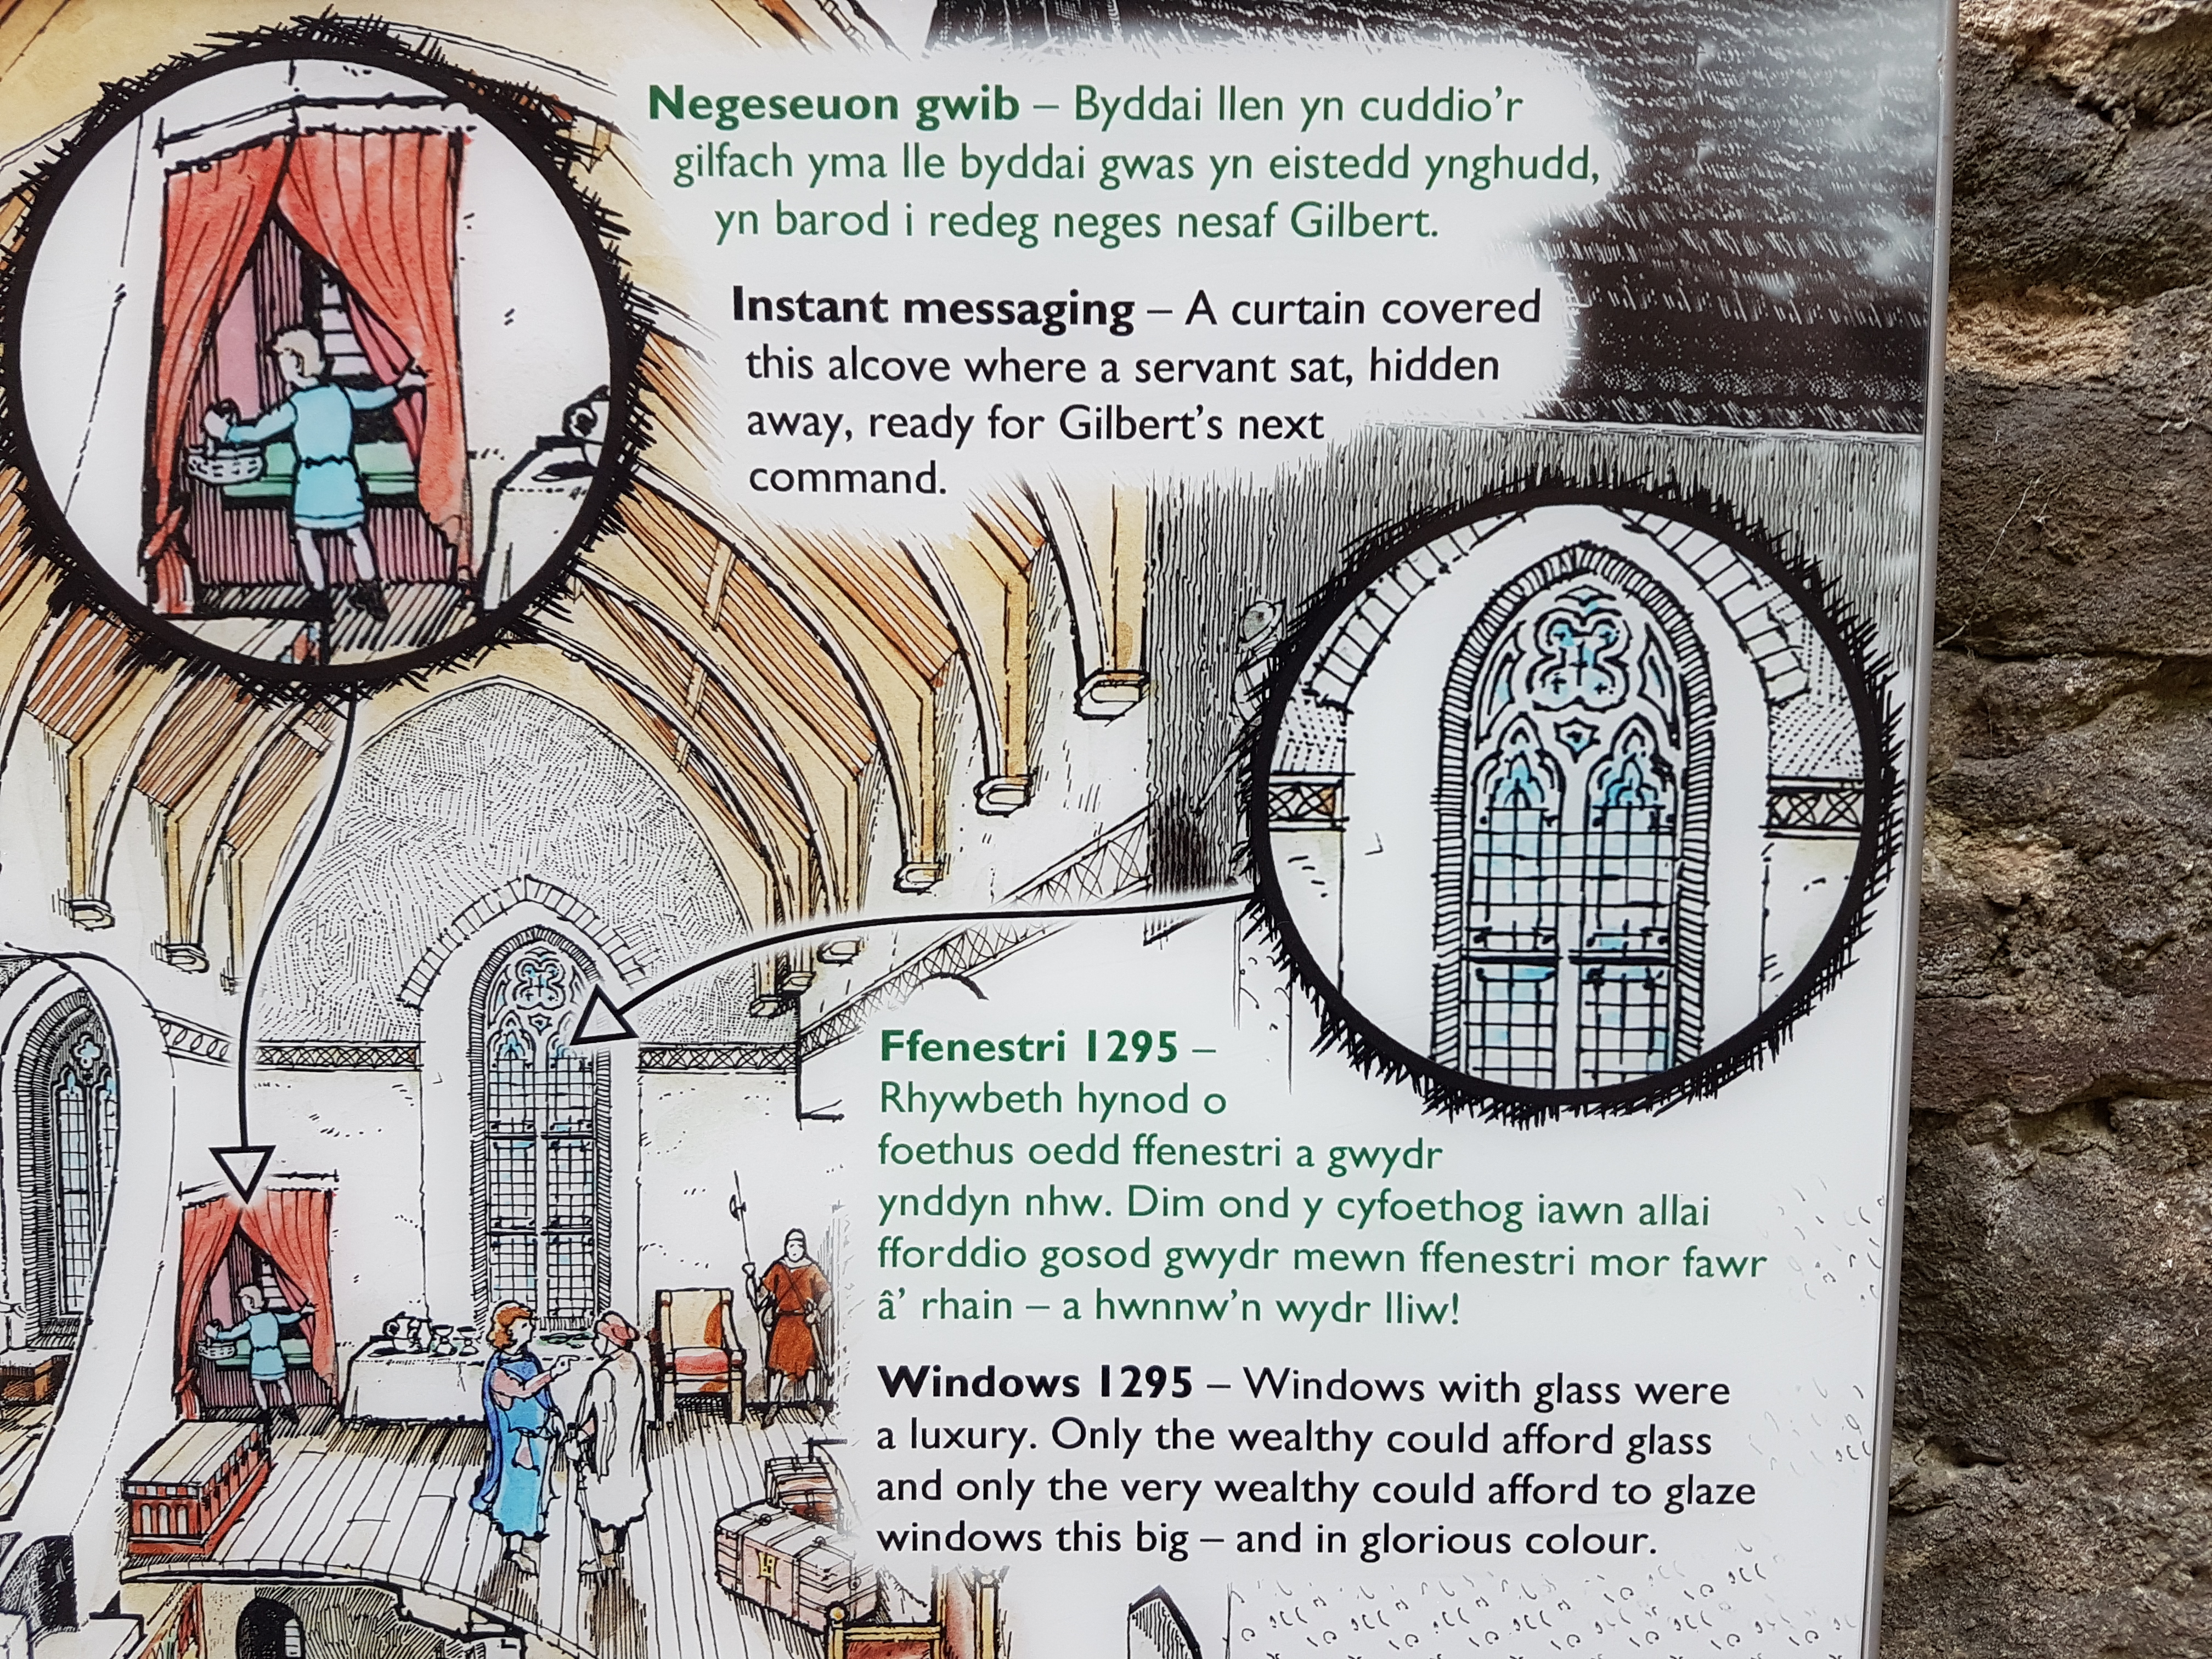 Negeseuon gwib – Byddai llen yn cuddio'r
gilfach yma lle byddai gwas yn eistedd ynghudd,
yn barod i redeg neges nesaf Gilbert.
Instant messaging – A curtain covered
this alcove where a servant sat, hidden
away, ready for Gilbert's next
command.
Ffenestri 1295 –
Rhywbeth hynod o
foethus oedd ffenestri a gwydr
ynddyn nhw. Dim ond y cyfoethog iawn allai
fforddio gosod gwydr mewn ffenestri mor fawr
â' rhain – a hwnnw'n wydr lliw!
Windows 1295 – Windows with glass were
a luxury. Only the wealthy could afford glass
and only the very wealthy could afford to glaze
windows this big – and in glorious colour.